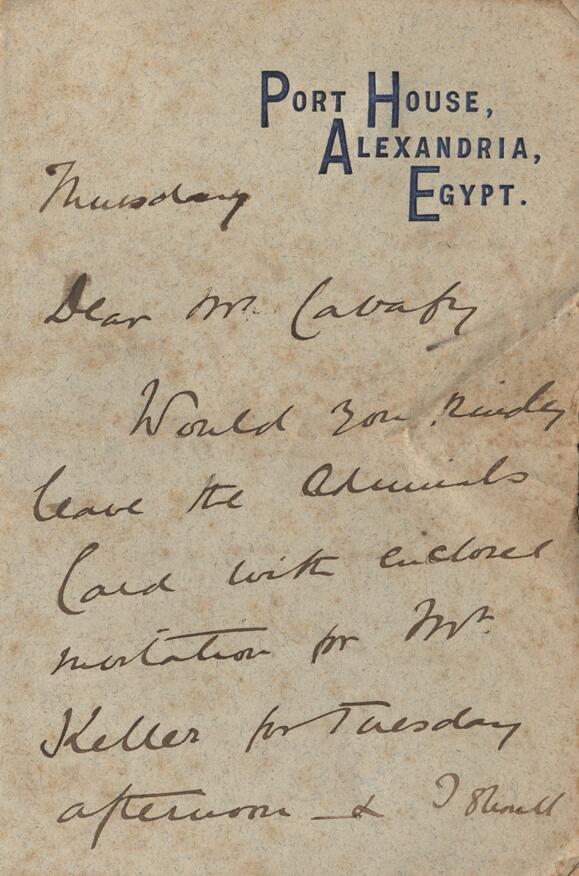 PORT HOUSE,
ALEXANDRIA,
EGYPT.
Thursday
Dear Mr. Cavafy
Would you kindly
leave the Admirals
Card with enclosed
invitation for Mr.
Keller for Tuesday
afternoon & I should